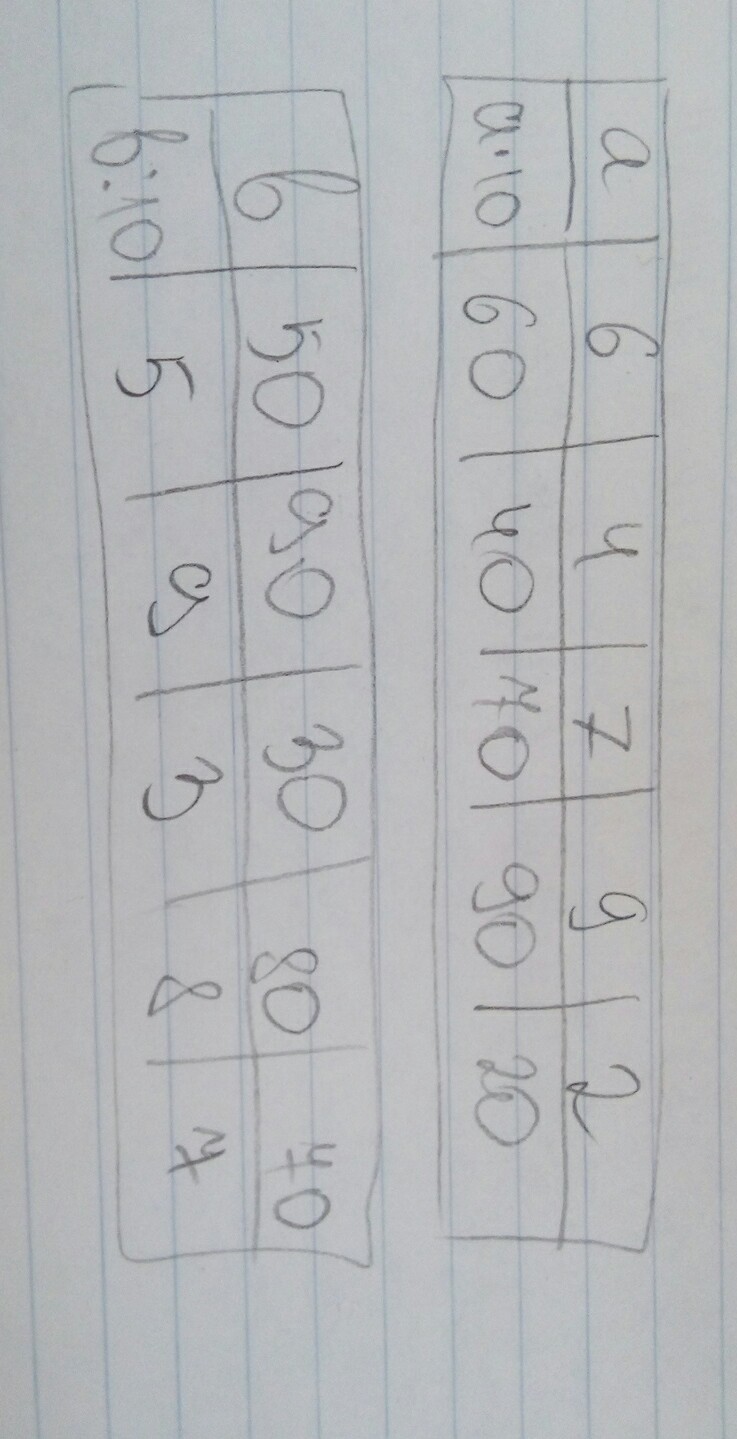 a 6 4 7 9 2
a·10 60 40 70 90 20
b 50 90 30 80 70
b:10 5 9 3 8 7